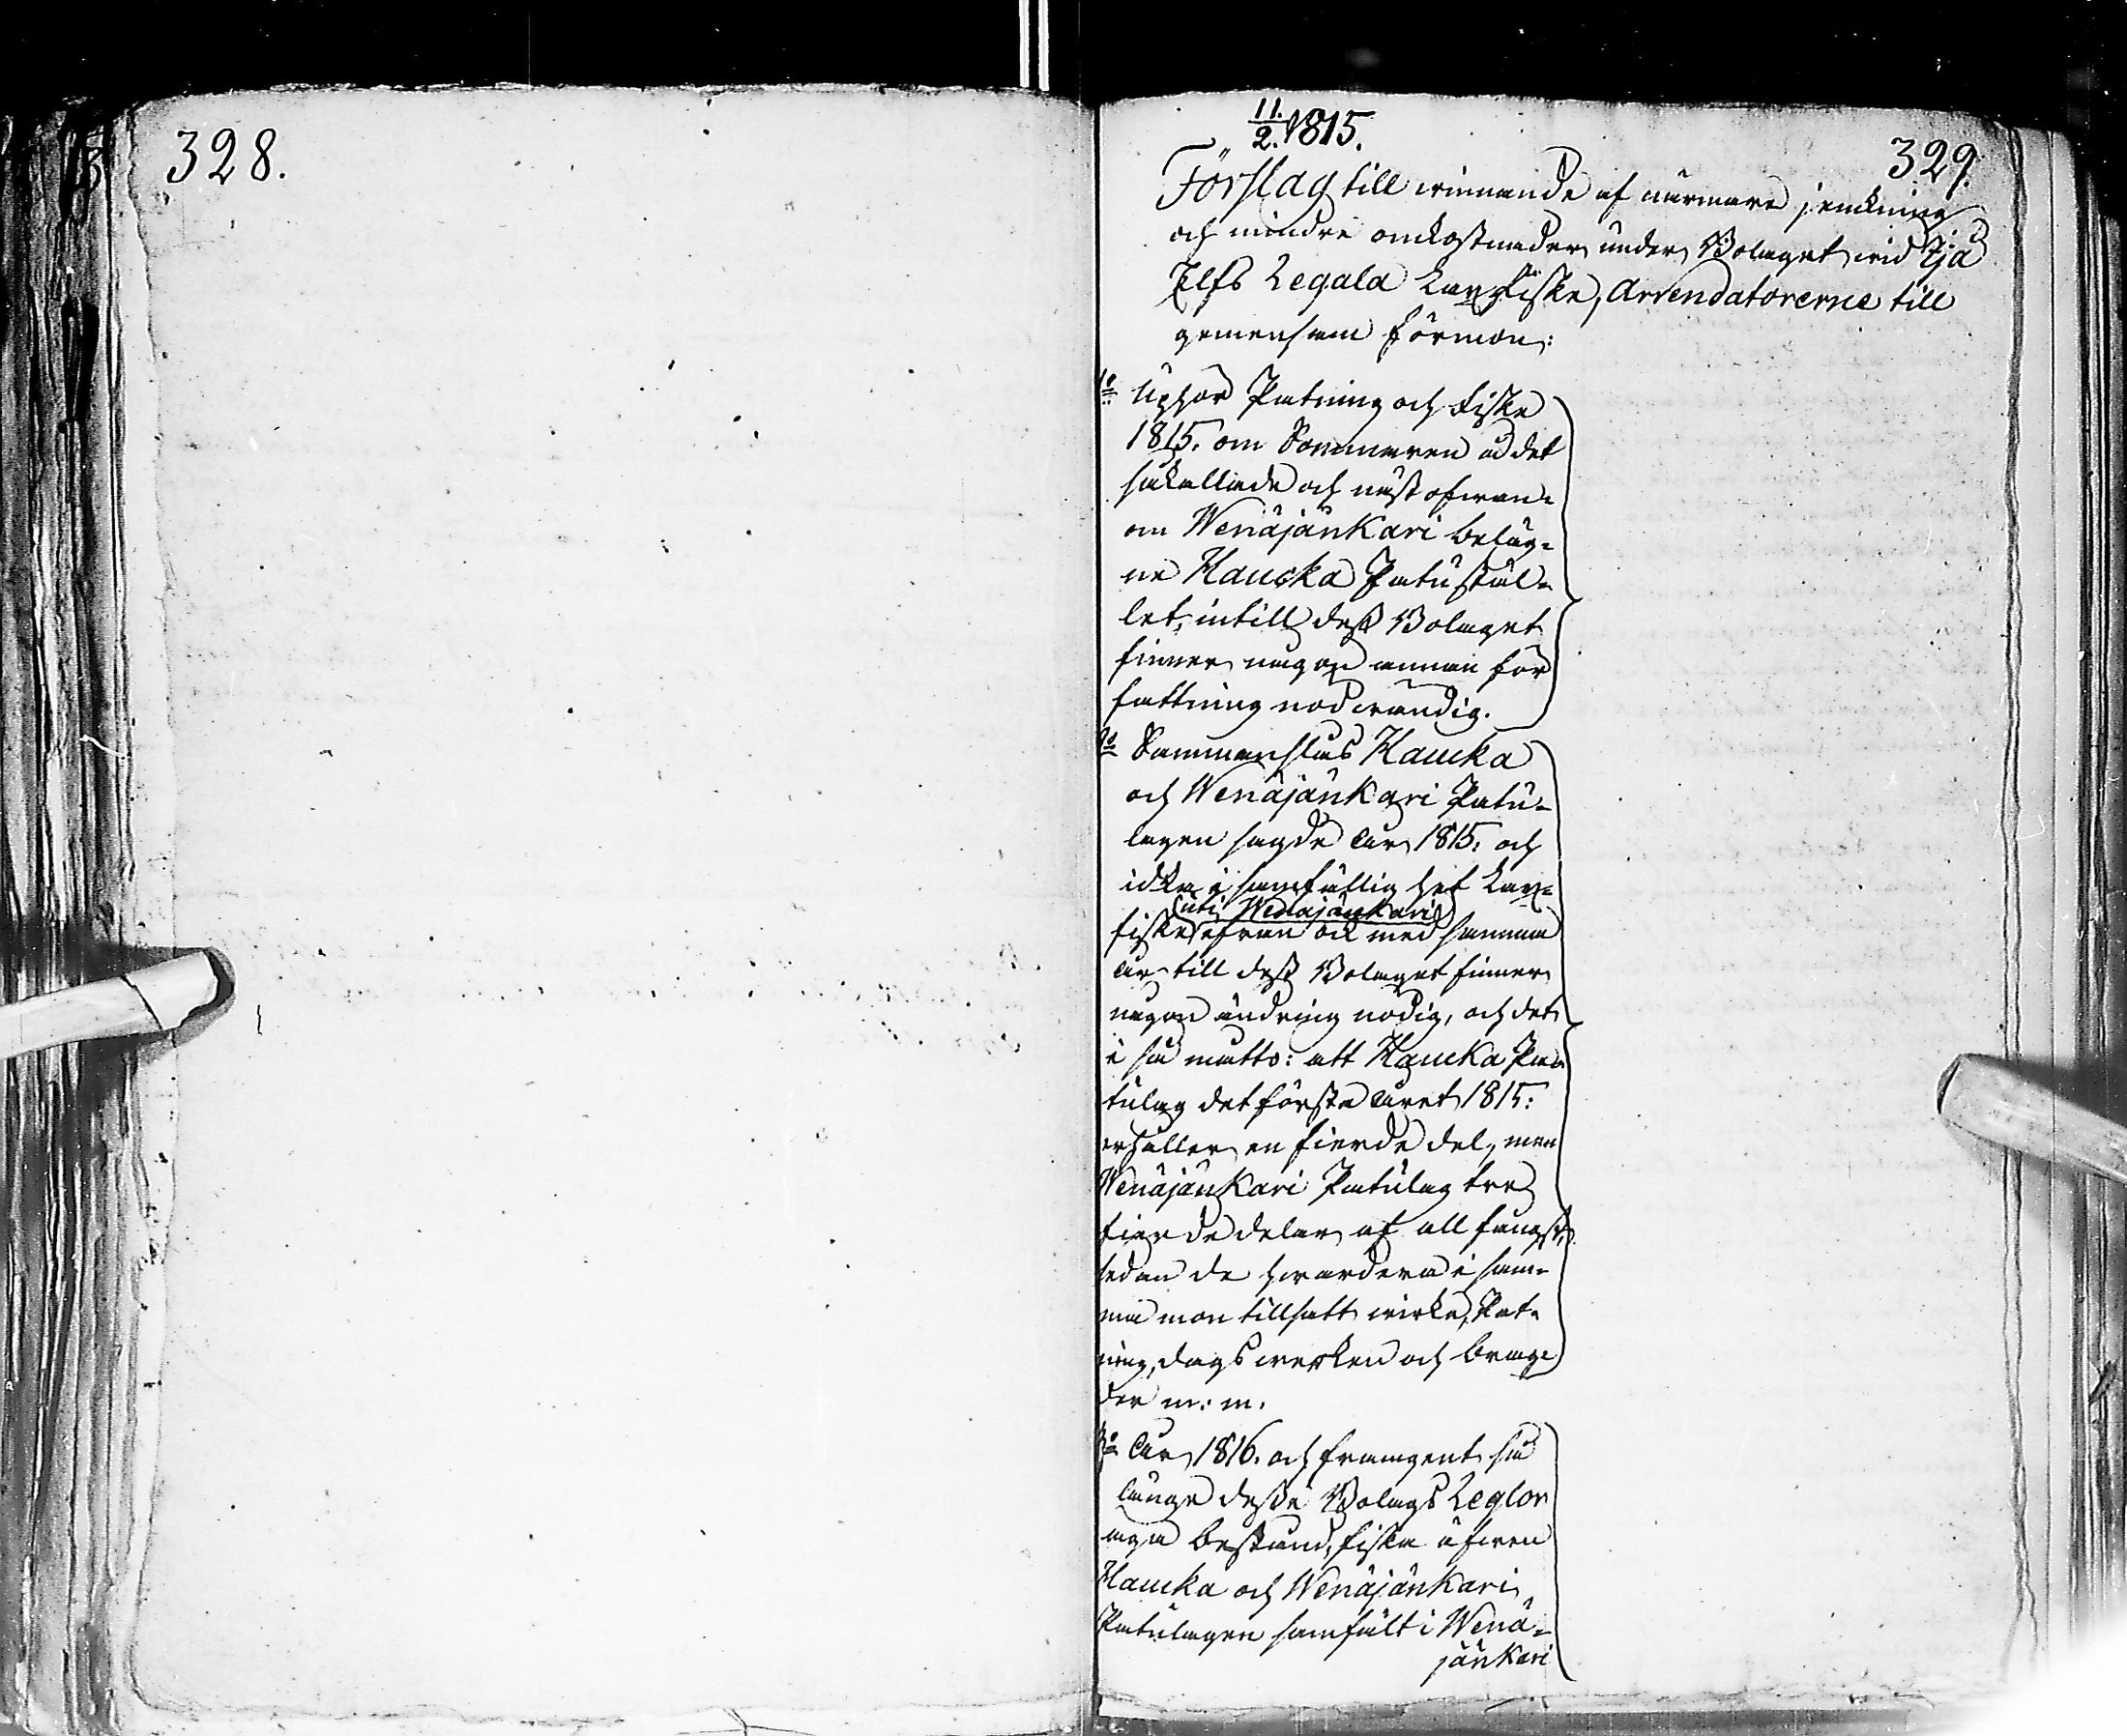 328.
11./2. 1815.
329.
Förslag till winnande af närmare jemkning
och mindre omkostnader under Bolaget wid Ijå
Elfs Legala Laxfiske, Arrendatorerne till
gemensam förmon:
1o Uphör Patning och Fiske
1815. om Sommaren å det
såkallade och näst ofwan-
om Wenäjänkari beläg-
ne Haucka Patustäl-
let, intill dess Bolaget
finner någon annan för
fattning nödwändig.
2o Sammanslås Haucka
och Wenäjänkari Patu-
lagen sagde år 1815. och
idka i samfällighet Lax-
uti Wenäjänkari
fiske från och med samma
år till dess Bolaget finner
någon ändring nödig, och det
i så matto: att Haucka Pa-
tulag det första året 1815:
erhåller en fierde del, men
Wenäjänkari Patulag tre
fierde delar af all fångst,
sedan de hwardera i sam-
ma mon tillsatt wirke, Pat-
ning, dagswerken och brag-
der m: m.
3o År 1816. och framgent så
länge desse Bolags Reglor
äga bestånd, fiska äfwen
Haucka och Wenäjänkari
Patulagen samfält i Wenä-
jänkari